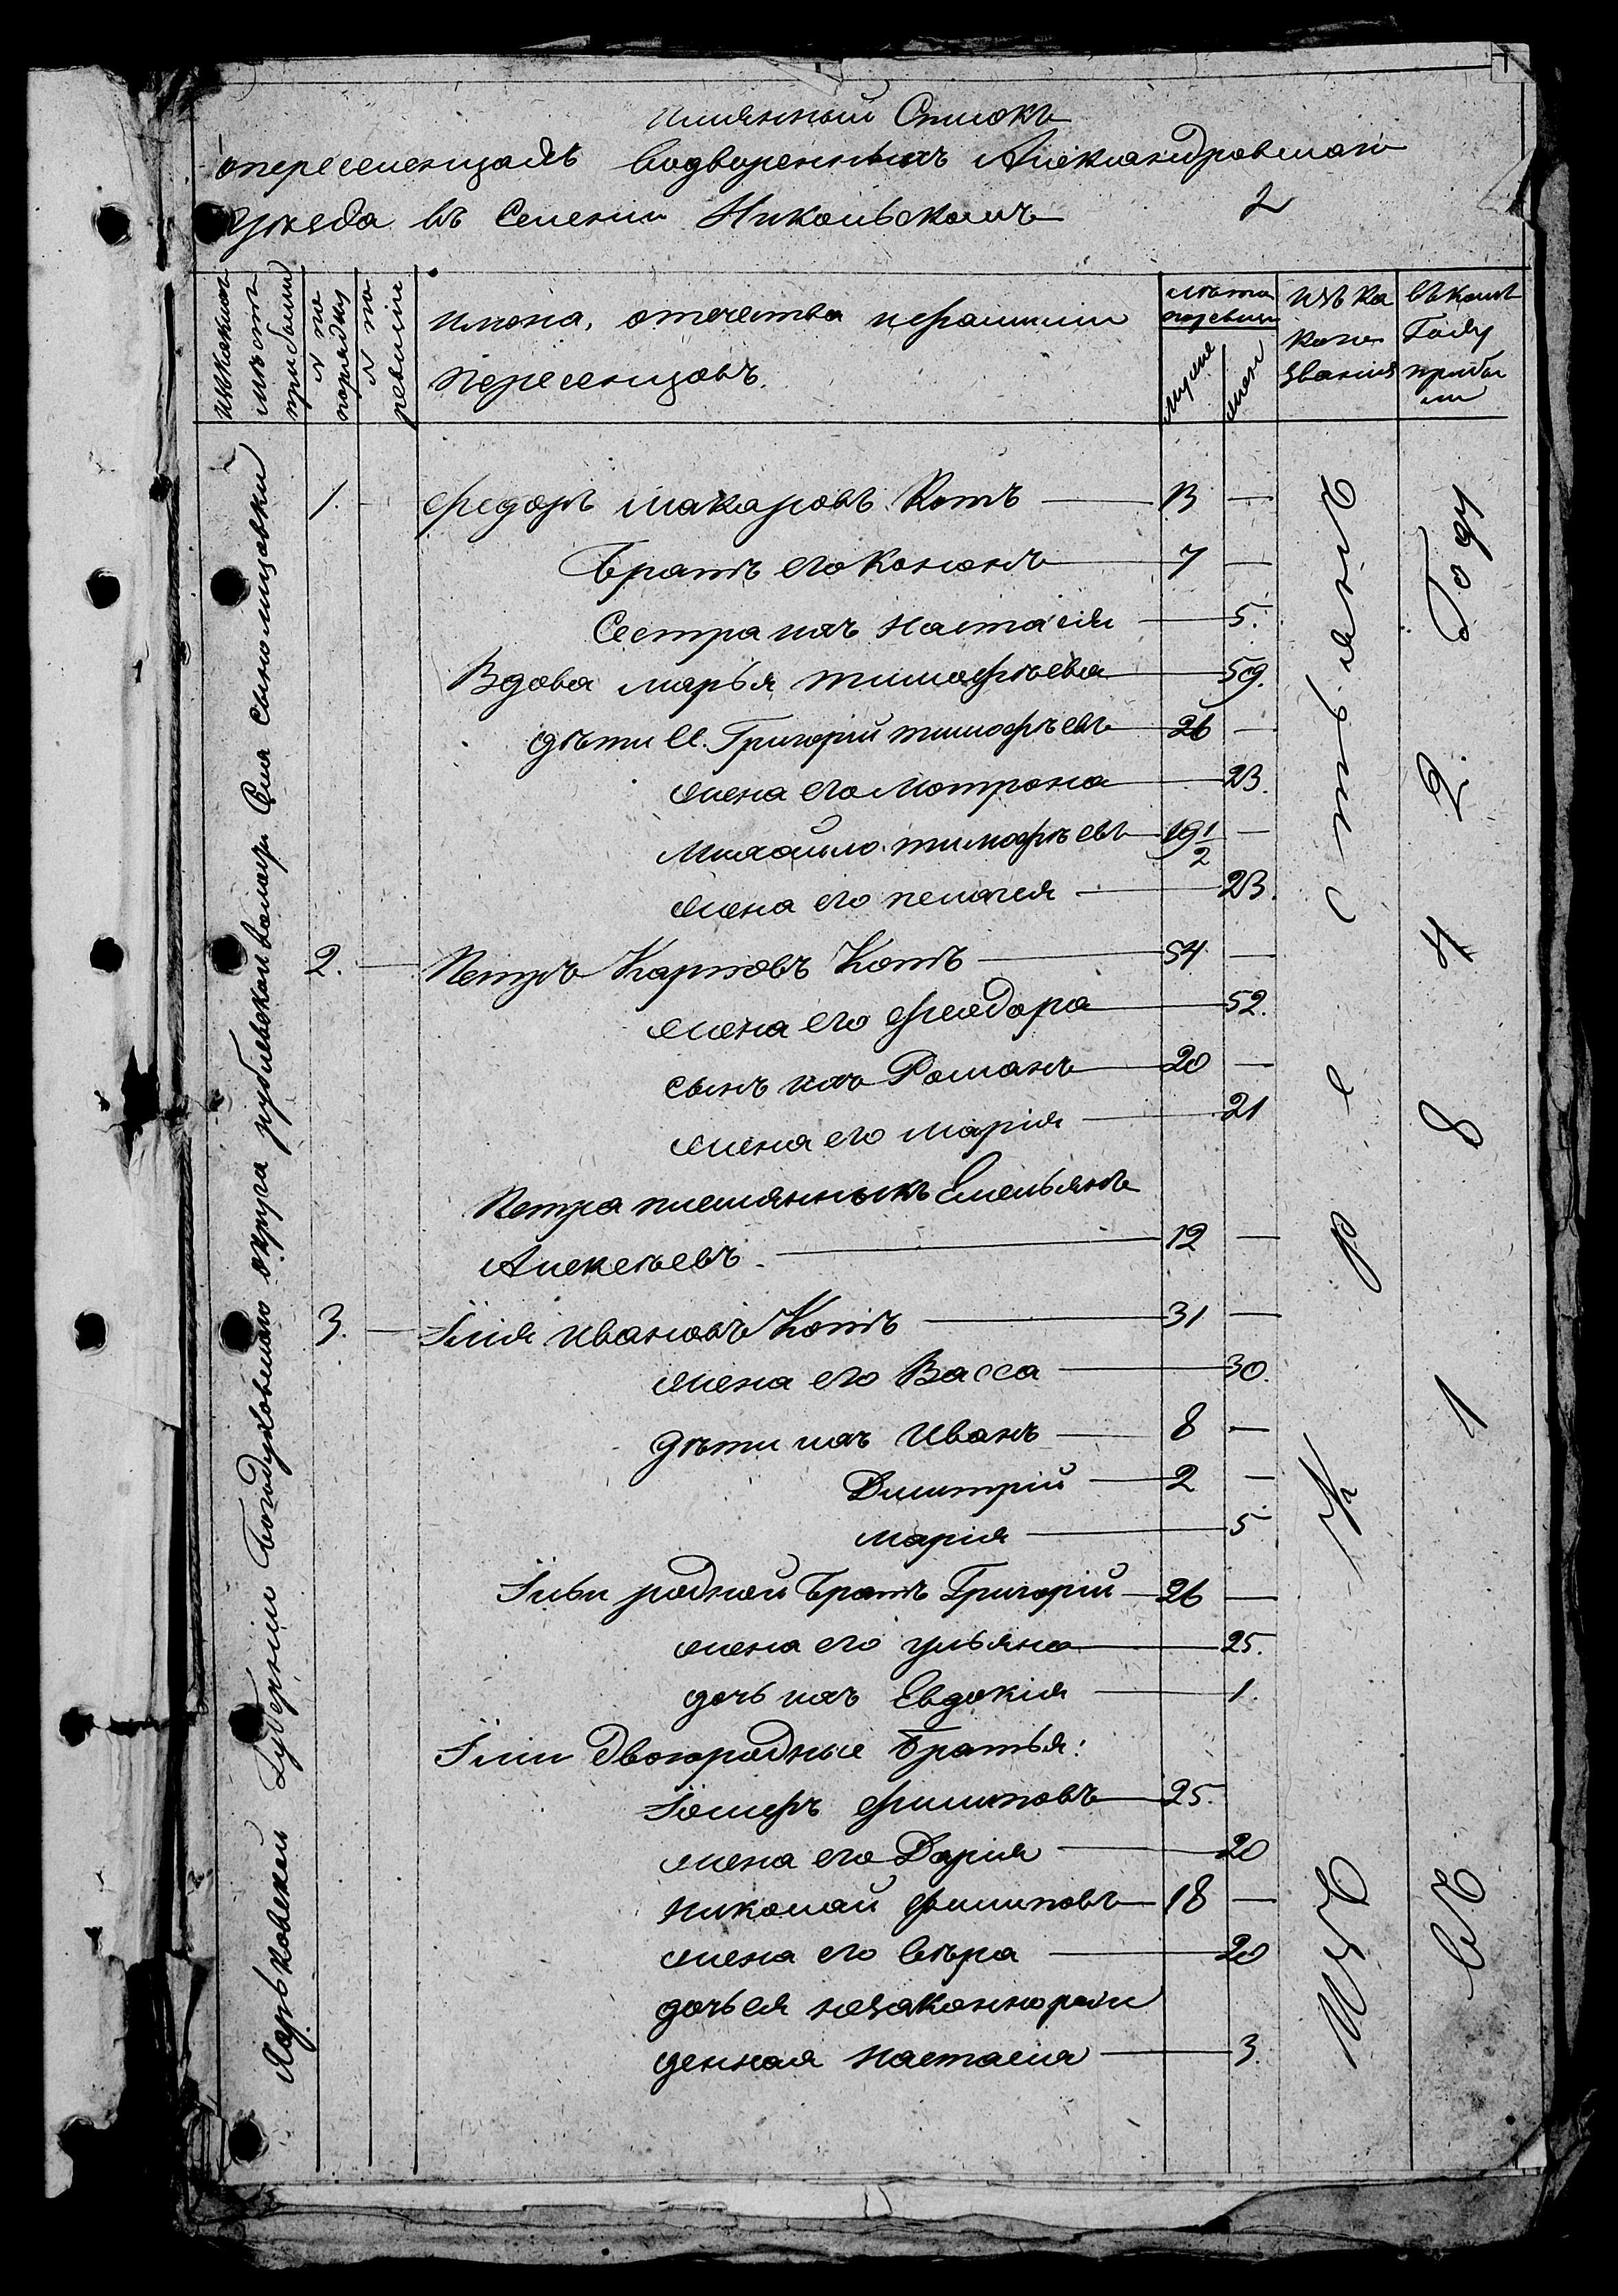 Имянный Списокъ
о переселенцахъ водворенныхъ Александровскаго
уезда въ Селении Никольскомъ
2
изъ какихъ местъ прибыли
N по порядку
N по ревизии
имена, отечества и фамилии
переселенцовъ.
лета по ревизии
мужие
жен
изъ ка
кого
звания
въ какомъ
Году
прибы
ли
Харьковской Губернии Богодуховскаго округа рублевской волости Села сынолицовки
1. — федоръ макаровъ Котъ — 13 —
Братъ его Кононъ — 7 —
Сестра ихъ настасия — 5.
Вдова марья тимофѣева — 59.
дѣти ея. Григорій тимофѣевъ — 26 —
жена его мотрона — 23.
михайло тимофѣевъ — 19 1/2 —
жена его пелагея — 23.
2. — Петръ Карповъ Котъ — 54 —
жена его феодора — 52.
сынъ ихъ Романъ — 20 —
жена его марія — 21
Петра племянныкъ Емельянъ
Алексѣевъ — 12 —
3. — Ілія ивановъ Котъ — 31 —
жена его Васса — 30.
дѣти ихъ Иванъ — 8 —
Дмитрій — 2 —
марія — 5
Ільи родной братъ Григорій — 26 —
жена его ульяна — 25.
дочь ихъ Евдокія — 1.
Іліи двоюродные братья:
Іосифъ филиповъ — 25.
жена его Дарія — 20
николай филиповъ — 18 —
жена его вѣра — 20
дочь ея незаконорож
денная настасия — 3.
Изъ крестьянъ
въ 1842. Году